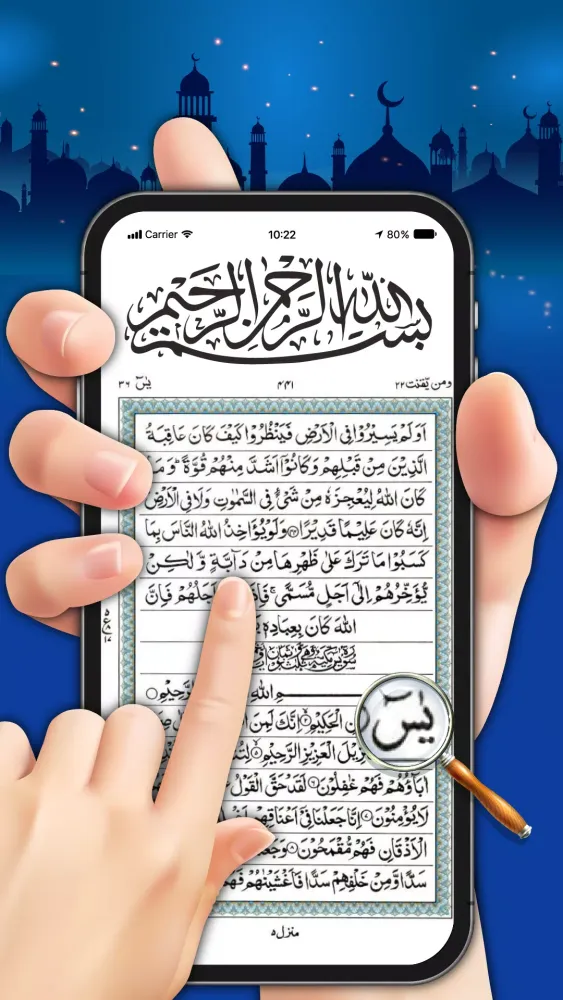 Carrier 10:22 80%
بسم الله الرحمن الرحيم
ومن یّقنت ٢٢ ٤٤١ یٰسٓ ٣٦
اَوَلَمْ یَسِیْرُوْا فِی الْاَرْضِ فَیَنْظُرُوْا كَیْفَ كَانَ عَاقِبَةُ
الَّذِیْنَ مِنْ قَبْلِهِمْ وَ كَانُوْۤا اَشَدَّ مِنْهُمْ قُوَّةً ؕ وَ مَا
كَانَ اللّٰهُ لِیُعْجِزَهٗ مِنْ شَیْءٍ فِی السَّمٰوٰتِ وَ لَا فِی الْاَرْضِ ؕ
اِنَّهٗ كَانَ عَلِیْمًا قَدِیْرًا ﴿٤٤﴾ وَ لَوْ یُؤَاخِذُ اللّٰهُ النَّاسَ بِمَا
كَسَبُوْا مَا تَرَكَ عَلٰی ظَهْرِهَا مِنْ دَآبَّةٍ وَّ لٰكِنْ
یُّؤَخِّرُهُمْ اِلٰۤی اَجَلٍ مُّسَمًّی ۚ اَجَلُهُمْ فَاِنَّ
اللّٰهَ كَانَ بِعِبَادِهٖ
اللّٰهِ
الْحَكِیْمِ ۙ اِنَّكَ لَمِنَ
الْعَزِیْزِ الرَّحِیْمِ ۙ
یٰسٓ
اٰبَآؤُهُمْ فَهُمْ غٰفِلُوْنَ ﴿٦﴾ لَقَدْ حَقَّ الْقَوْلُ
لَا یُؤْمِنُوْنَ ﴿٧﴾ اِنَّا جَعَلْنَا فِیْۤ اَعْنَاقِهِمْ
الْاَذْقَانِ فَهُمْ مُّقْمَحُوْنَ ﴿٨﴾
سَدًّا وَّ مِنْ خَلْفِهِمْ سَدًّا فَاَغْشَیْنٰهُمْ فَهُمْ
منزل ٥